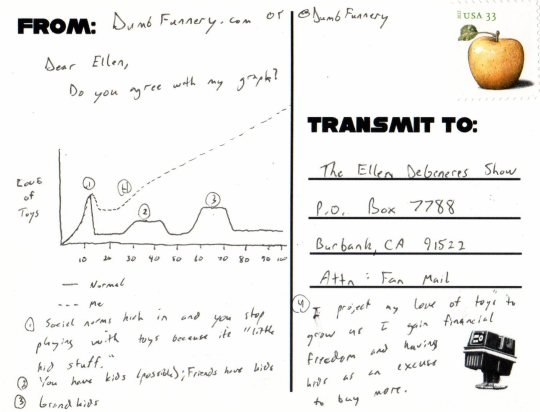 FROM: DumbFunnery.com or @DumbFunnery
Dear Ellen,
Do you agree with my graph?
Love
of
Toys
1
4
2
3
10 20 30 40 50 60 70 80 90 100
— Normal
--- Me
1 Social norms kick in and you stop
playing with toys because its "little
kid stuff."
2 You have kids (possible); Friends have kids
3 Grandkids
USA 33
TRANSMIT TO:
The Ellen DeGeneres Show
P.O. Box 7788
Burbank, CA 91522
Attn: Fan Mail
4 I project my love of toys to
grow as I gain financial
freedom and having
kids as an excuse
to buy more.